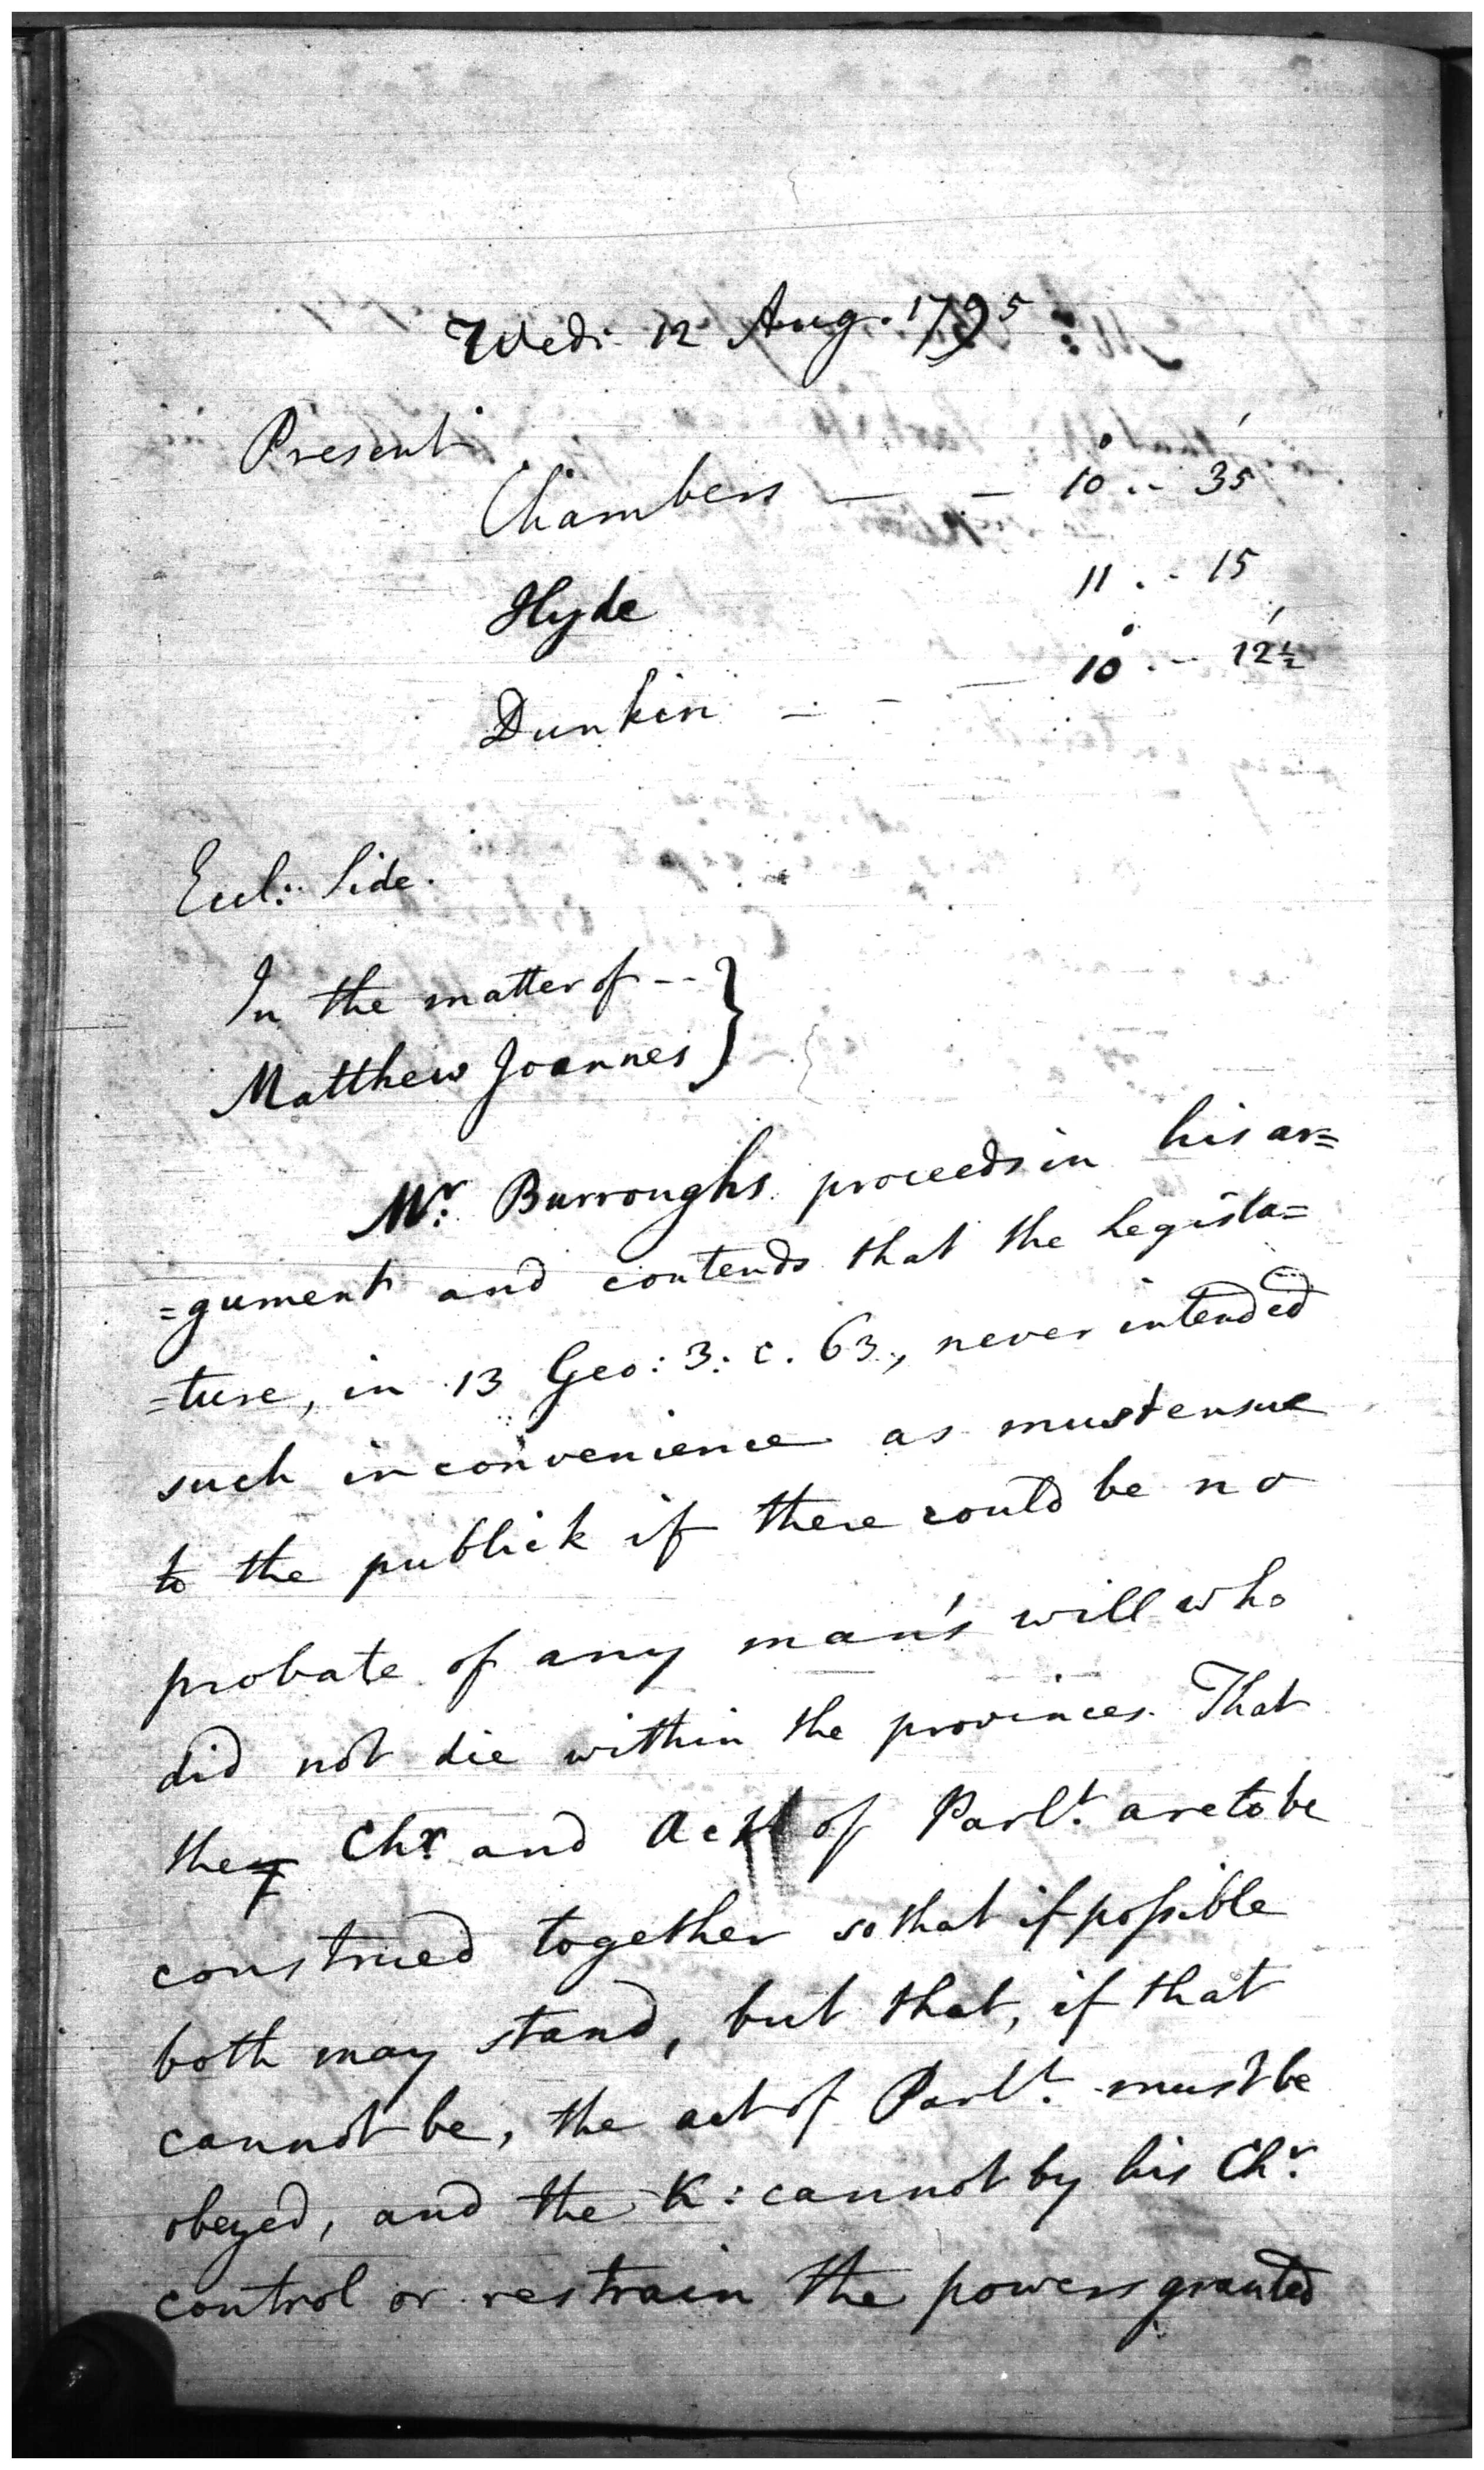 Wed: 12 Aug. 1795
Present
Chambers — — 10° .. 35'
Hyde 11 .. 15
Dunkin — - — 10° .- 12½'
Eccl: Side.
In the matter of -- }
Matthew Joannes }
Mr: Burroughs proceeds in his ar=
=gument and contends that the Legisla=
=ture, in 13 Geo: 3: c. 63., never intended
such inconvenience as must ensue
to the publick if there could be no
probate of any man's will who
did not die within the provinces. That
the Chr and Act of Parlt. are to be
construed together so that if possible
both may stand, but that, if that
cannot be, the act of Parlt. must be
obeyed, and the K: cannot by his Chr.
control or restrain the powers granted